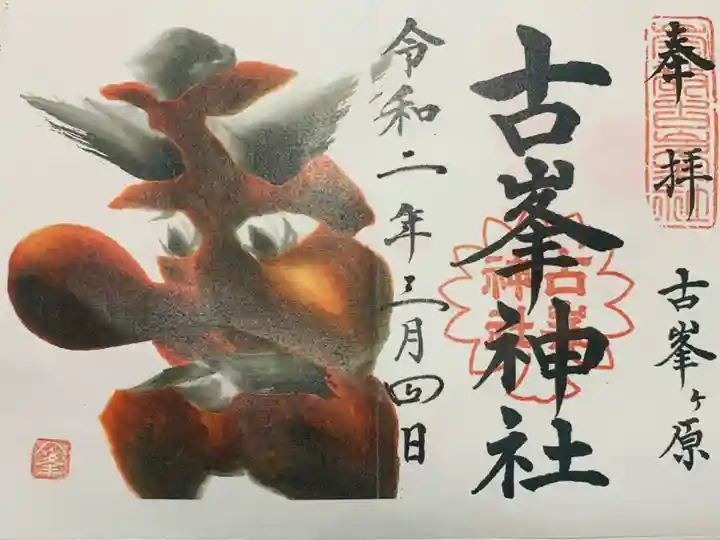 奉拝
古峯ヶ原
古峯神社
令和二年三月四日
峯